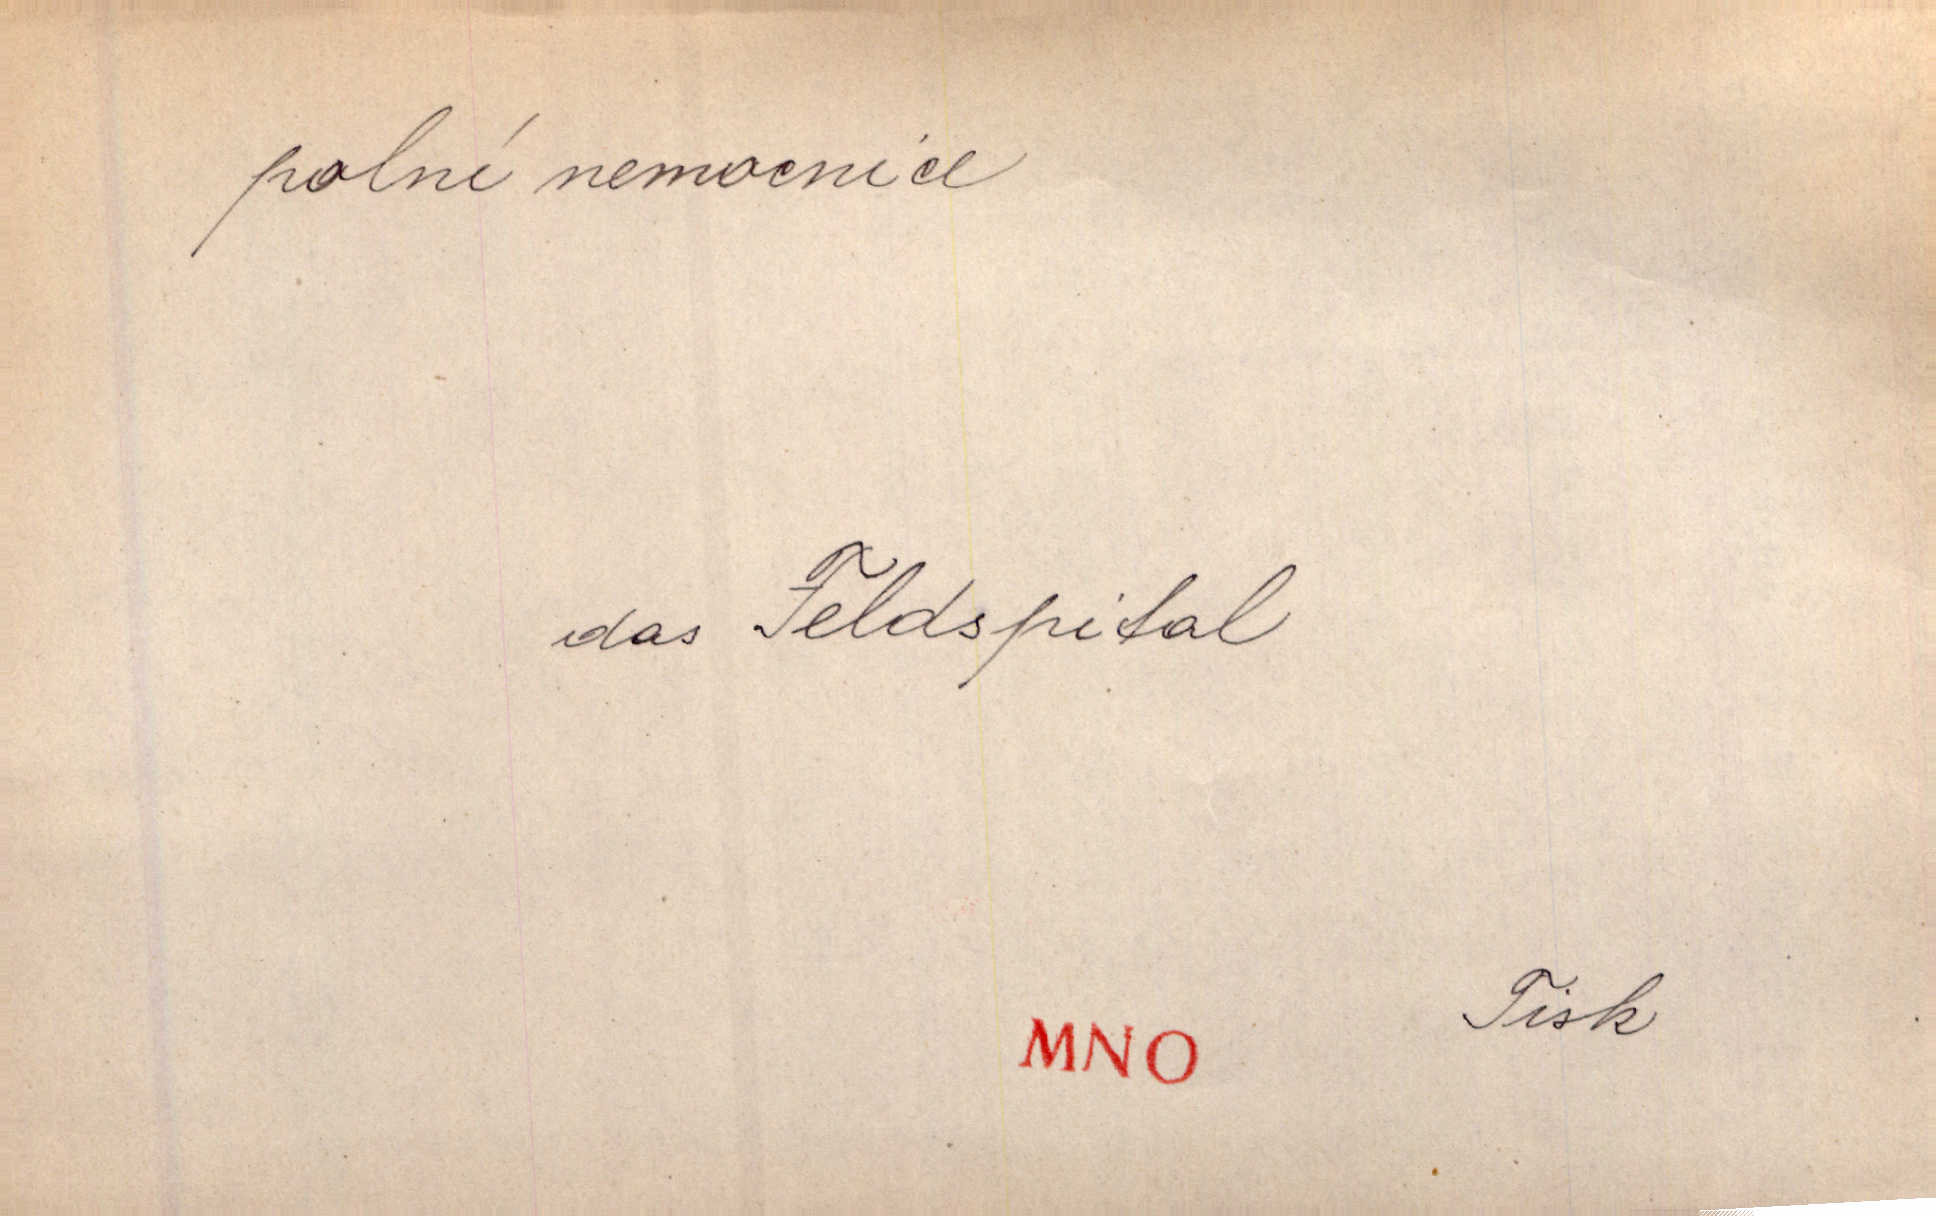 polní nemocnice
das Feldspital
Tisk
MNO